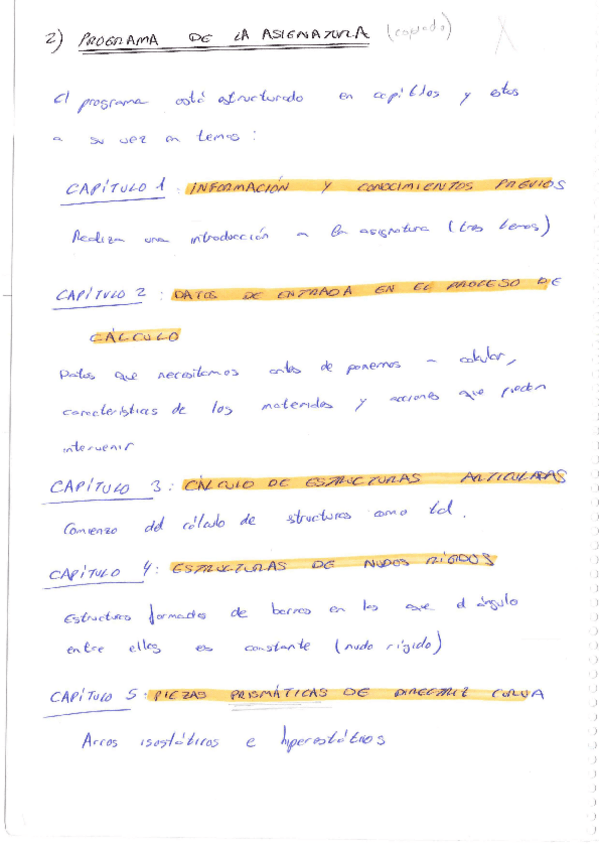 2) PROGRAMA DE LA ASIGNATURA (copiado)
El programa está estructurado en capítulos y estos
a su vez en temas :
CAPÍTULO 1 : INFORMACIÓN Y CONOCIMIENTOS PREVIOS
Realiza una introducción a la asignatura (tres temas)
CAPÍTULO 2 : DATOS DE ENTRADA EN EL PROCESO DE
CÁLCULO
Datos que necesitamos antes de ponernos a calcular,
características de los materiales y acciones que pueden
intervenir
CAPÍTULO 3 : CÁLCULO DE ESTRUCTURAS ARTICULADAS
Comienzo del cálculo de estructuras como tal.
CAPÍTULO 4 : ESTRUCTURAS DE NUDOS RÍGIDOS
Estructuras formadas de barras en las que el ángulo
entre ellas es constante (nudo rígido)
CAPÍTULO 5 : PIEZAS PRISMÁTICAS DE DIRECTRIZ CURVA
Arcos isostáticos e hiperestáticos